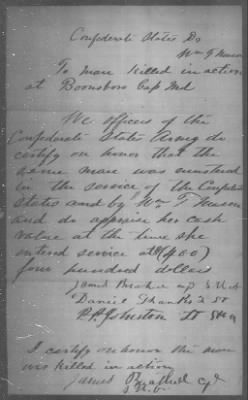 Confederate States Dr
Wm F Mason
To mare killed in action
at Boonsboro Gap Md
We officers of the
Confederate States Army do
certify on honor that the
above mare was mustered
in the service of the Confed
states and by Wm F Mason
and do appraise her cash
value at the time she
entered service at $(400)
four hundred dollars
James
Daniel Shanks 2
P.P. Johnston Lt
I certify on honor the mare
was killed in action
James